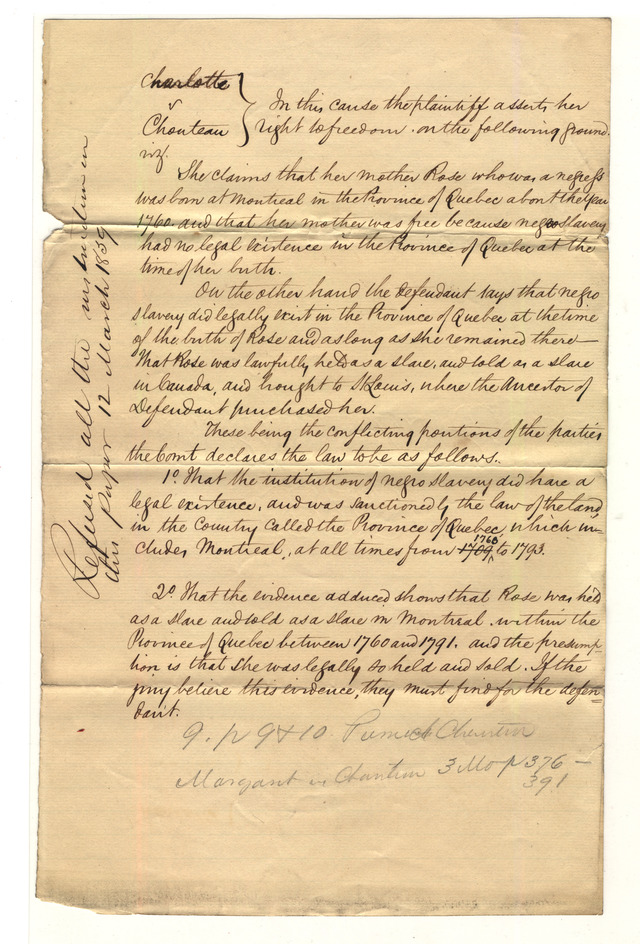 Charlotte
v
Chouteau
In this cause the plaintiff asserts her
right to freedom on the following ground.
viz.
She claims that her mother Rose who was a negress
was born at Montreal in the Province of Quebec about the year
1760 and that her mother was free because negro slavery
had no legal existence in the Province of Quebec at the
time of her birth.
On the other hand the Defendant says that negro
slavery did legally exist in the Province of Quebec at the time
of the birth of Rose and as long as she remained there—
That Rose was lawfully held as a slave, and sold as a slave
in Canada, and brought to St Louis, where the Ancestor of
Defendant purchased her.
These being the conflicting portions of the parties
the Court declares the law to be as follows.
1o. That the institution of negro slavery did have a
legal existence, and was sanctioned by the law of the land,
in the Country called the Province of Quebec, which in-
cludes Montreal, at all times from 1709 1768 to 1793.
2o. That the evidence adduced shows that Rose was held
as a slave and sold as a slave in Montreal. within the
Province of Quebec between 1760 and 1791. and the presump-
tion is that she was legally so held and sold. If the
jury believe this evidence, they must find for the defen-
dant.
9. p 9 & 10.
Margaret vs Chouteau 3 Mo p 376 —
391
Refused all the instruction in
this Paper 12 March 1839